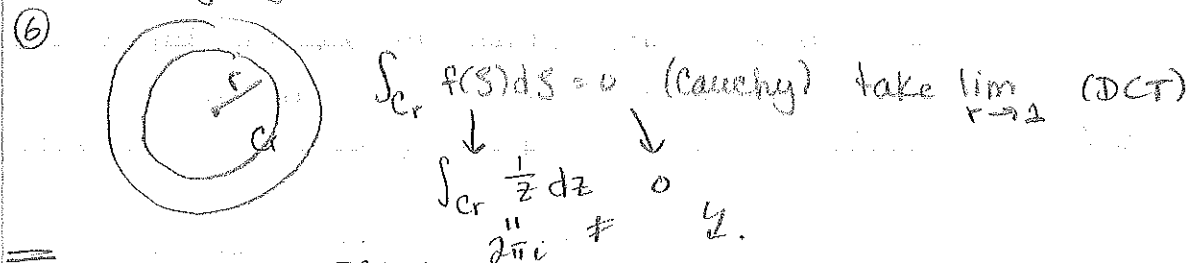 ⑥
r
Cr
∫_{Cr} f(ζ)dζ = 0 (Cauchy) take lim_{r→1} (DCT)
↓ ↘
∫_{Cr} 1/z dz 0
" ≠ ↯.
2πi